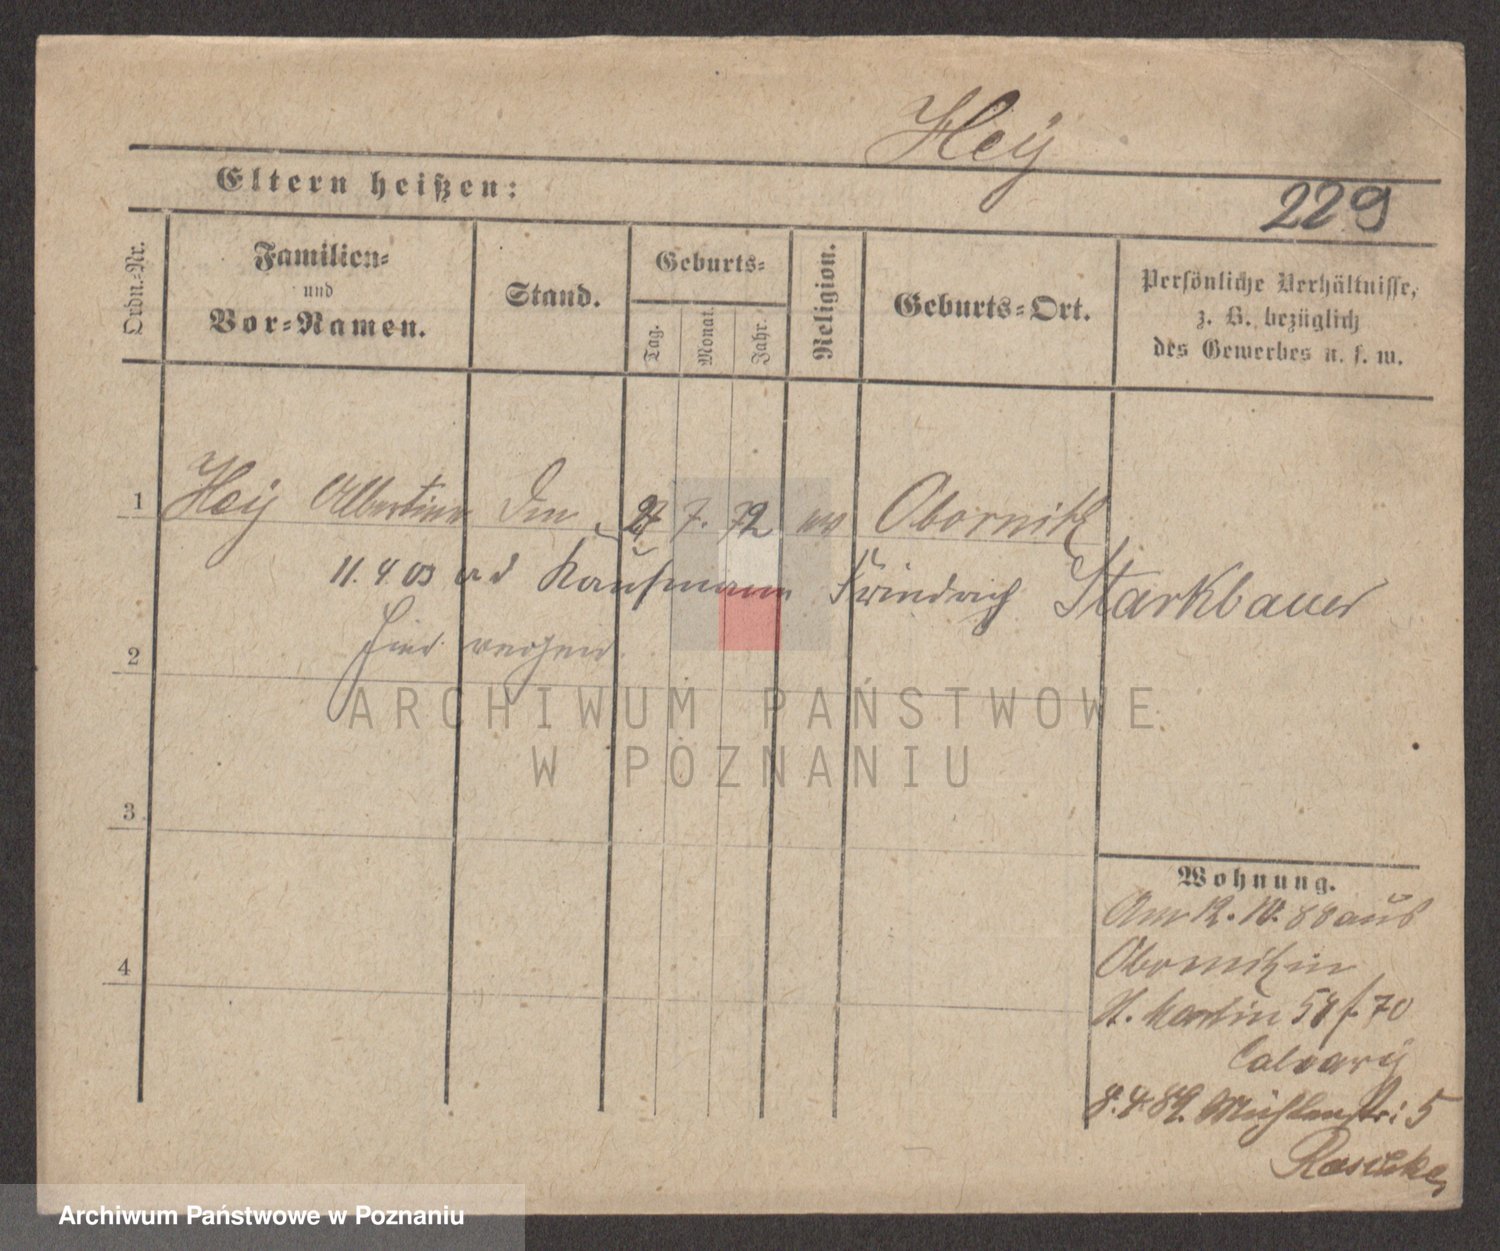 Heÿ
229
Eltern heißen:
Ordn.-Nr.
Familien-
und
Vor-Namen.
Stand.
Geburts-
Tag.
Monat.
Jahr.
Religion.
Geburts-Ort.
Persönliche Verhältnisse,
z. B. bezüglich
des Gewerbes u. s. w.
1 Heÿ Albertine 27 7. 72 Obornik
11. 4 03 Kaufmann Friedrich Starkbauer
hier
2
3
4
Wohnung.
Am 12. 10. 88 aus
Obornik in
St. Martin 58
Calvarÿ
8. 4. 89. Mühlenstr: 5
ARCHIWUM PAŃSTWOWE
W POZNANIU
Archiwum Państwowe w Poznaniu